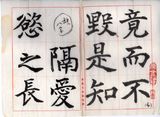 竟而不
毀是知
隔愛
慾之長